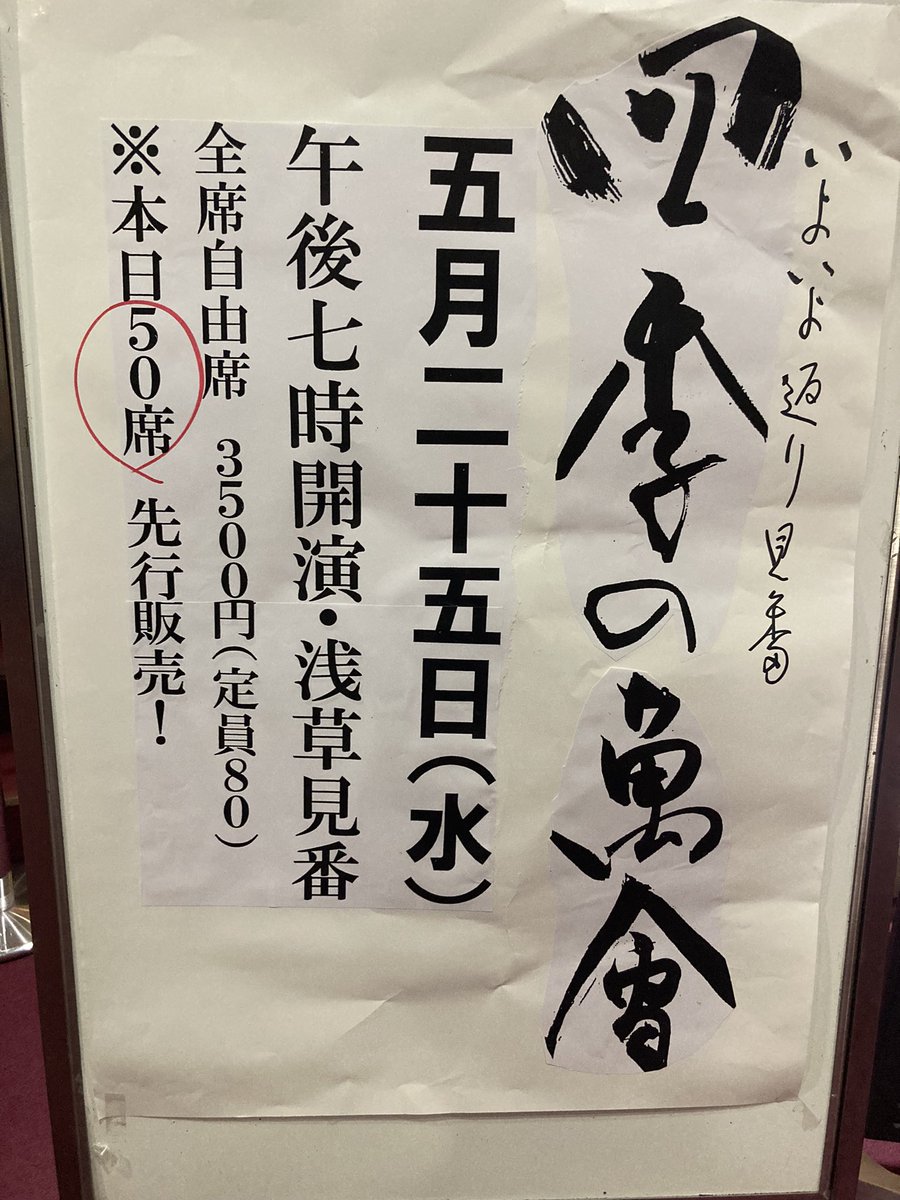 いよいよ返り見番
四季の萬會
五月二十五日(水)
午後七時開演・浅草見番
全席自由席 3500円(定員80)
※本日50席 先行販売!